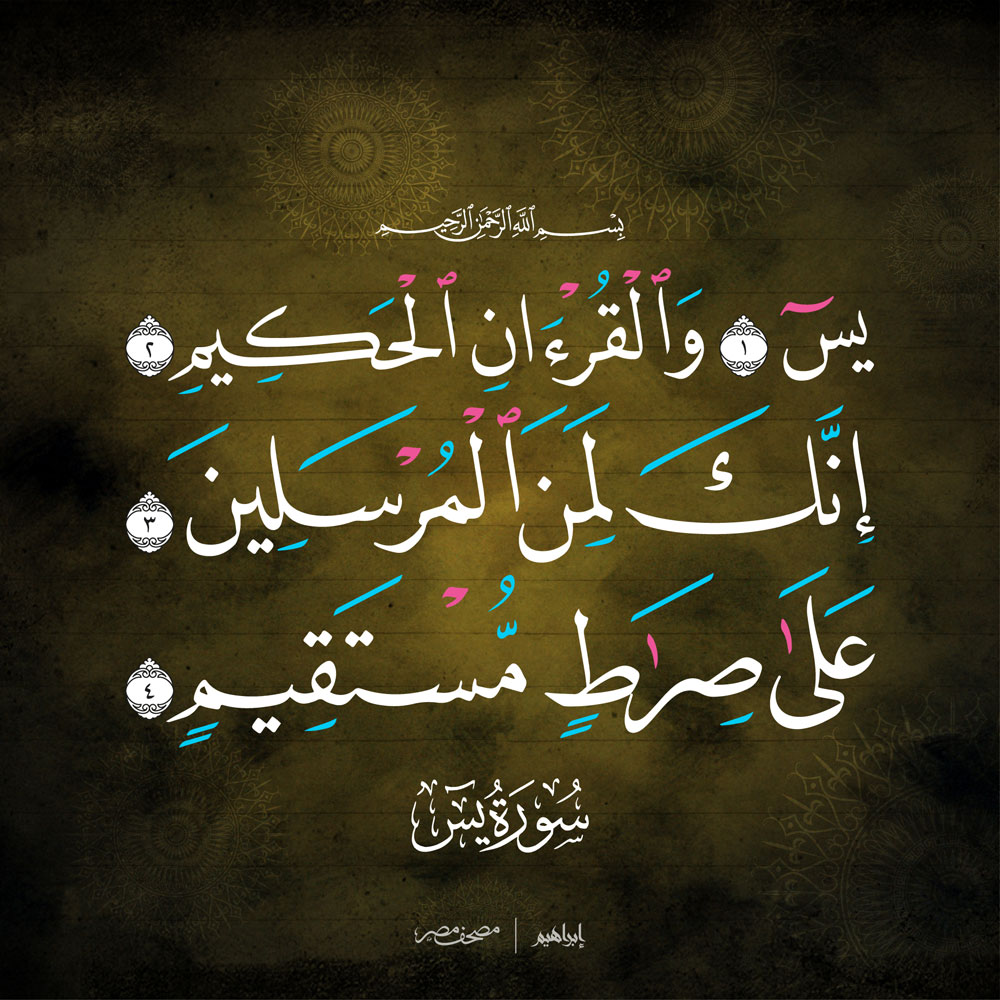 بِسْمِ ٱللَّهِ ٱلرَّحْمَٰنِ ٱلرَّحِيمِ
يسٓ ١ وَٱلْقُرْءَانِ ٱلْحَكِيمِ ٢
إِنَّكَ لَمِنَ ٱلْمُرْسَلِينَ ٣
عَلَىٰ صِرَٰطٍ مُّسْتَقِيمٍ ٤
سُورَةُ يسٓ
إبراهيم | مصحف مصر